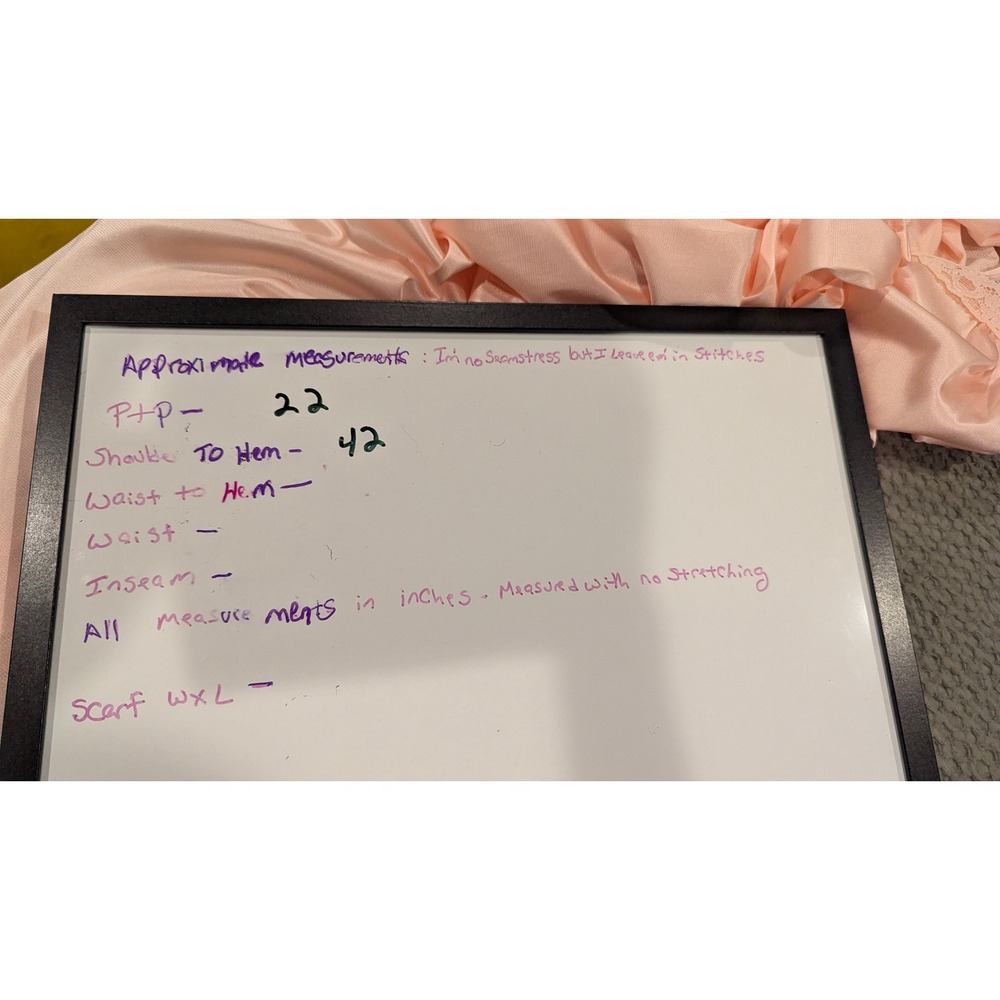 Approximate measurements: I'm no Seamstress but I Leave em in Stitches
P+P - 22
Shoulder To Hem - 42
Waist to Hem -
Waist -
Inseam -
All measurements in inches. Measured with no Stretching
Scarf WxL -